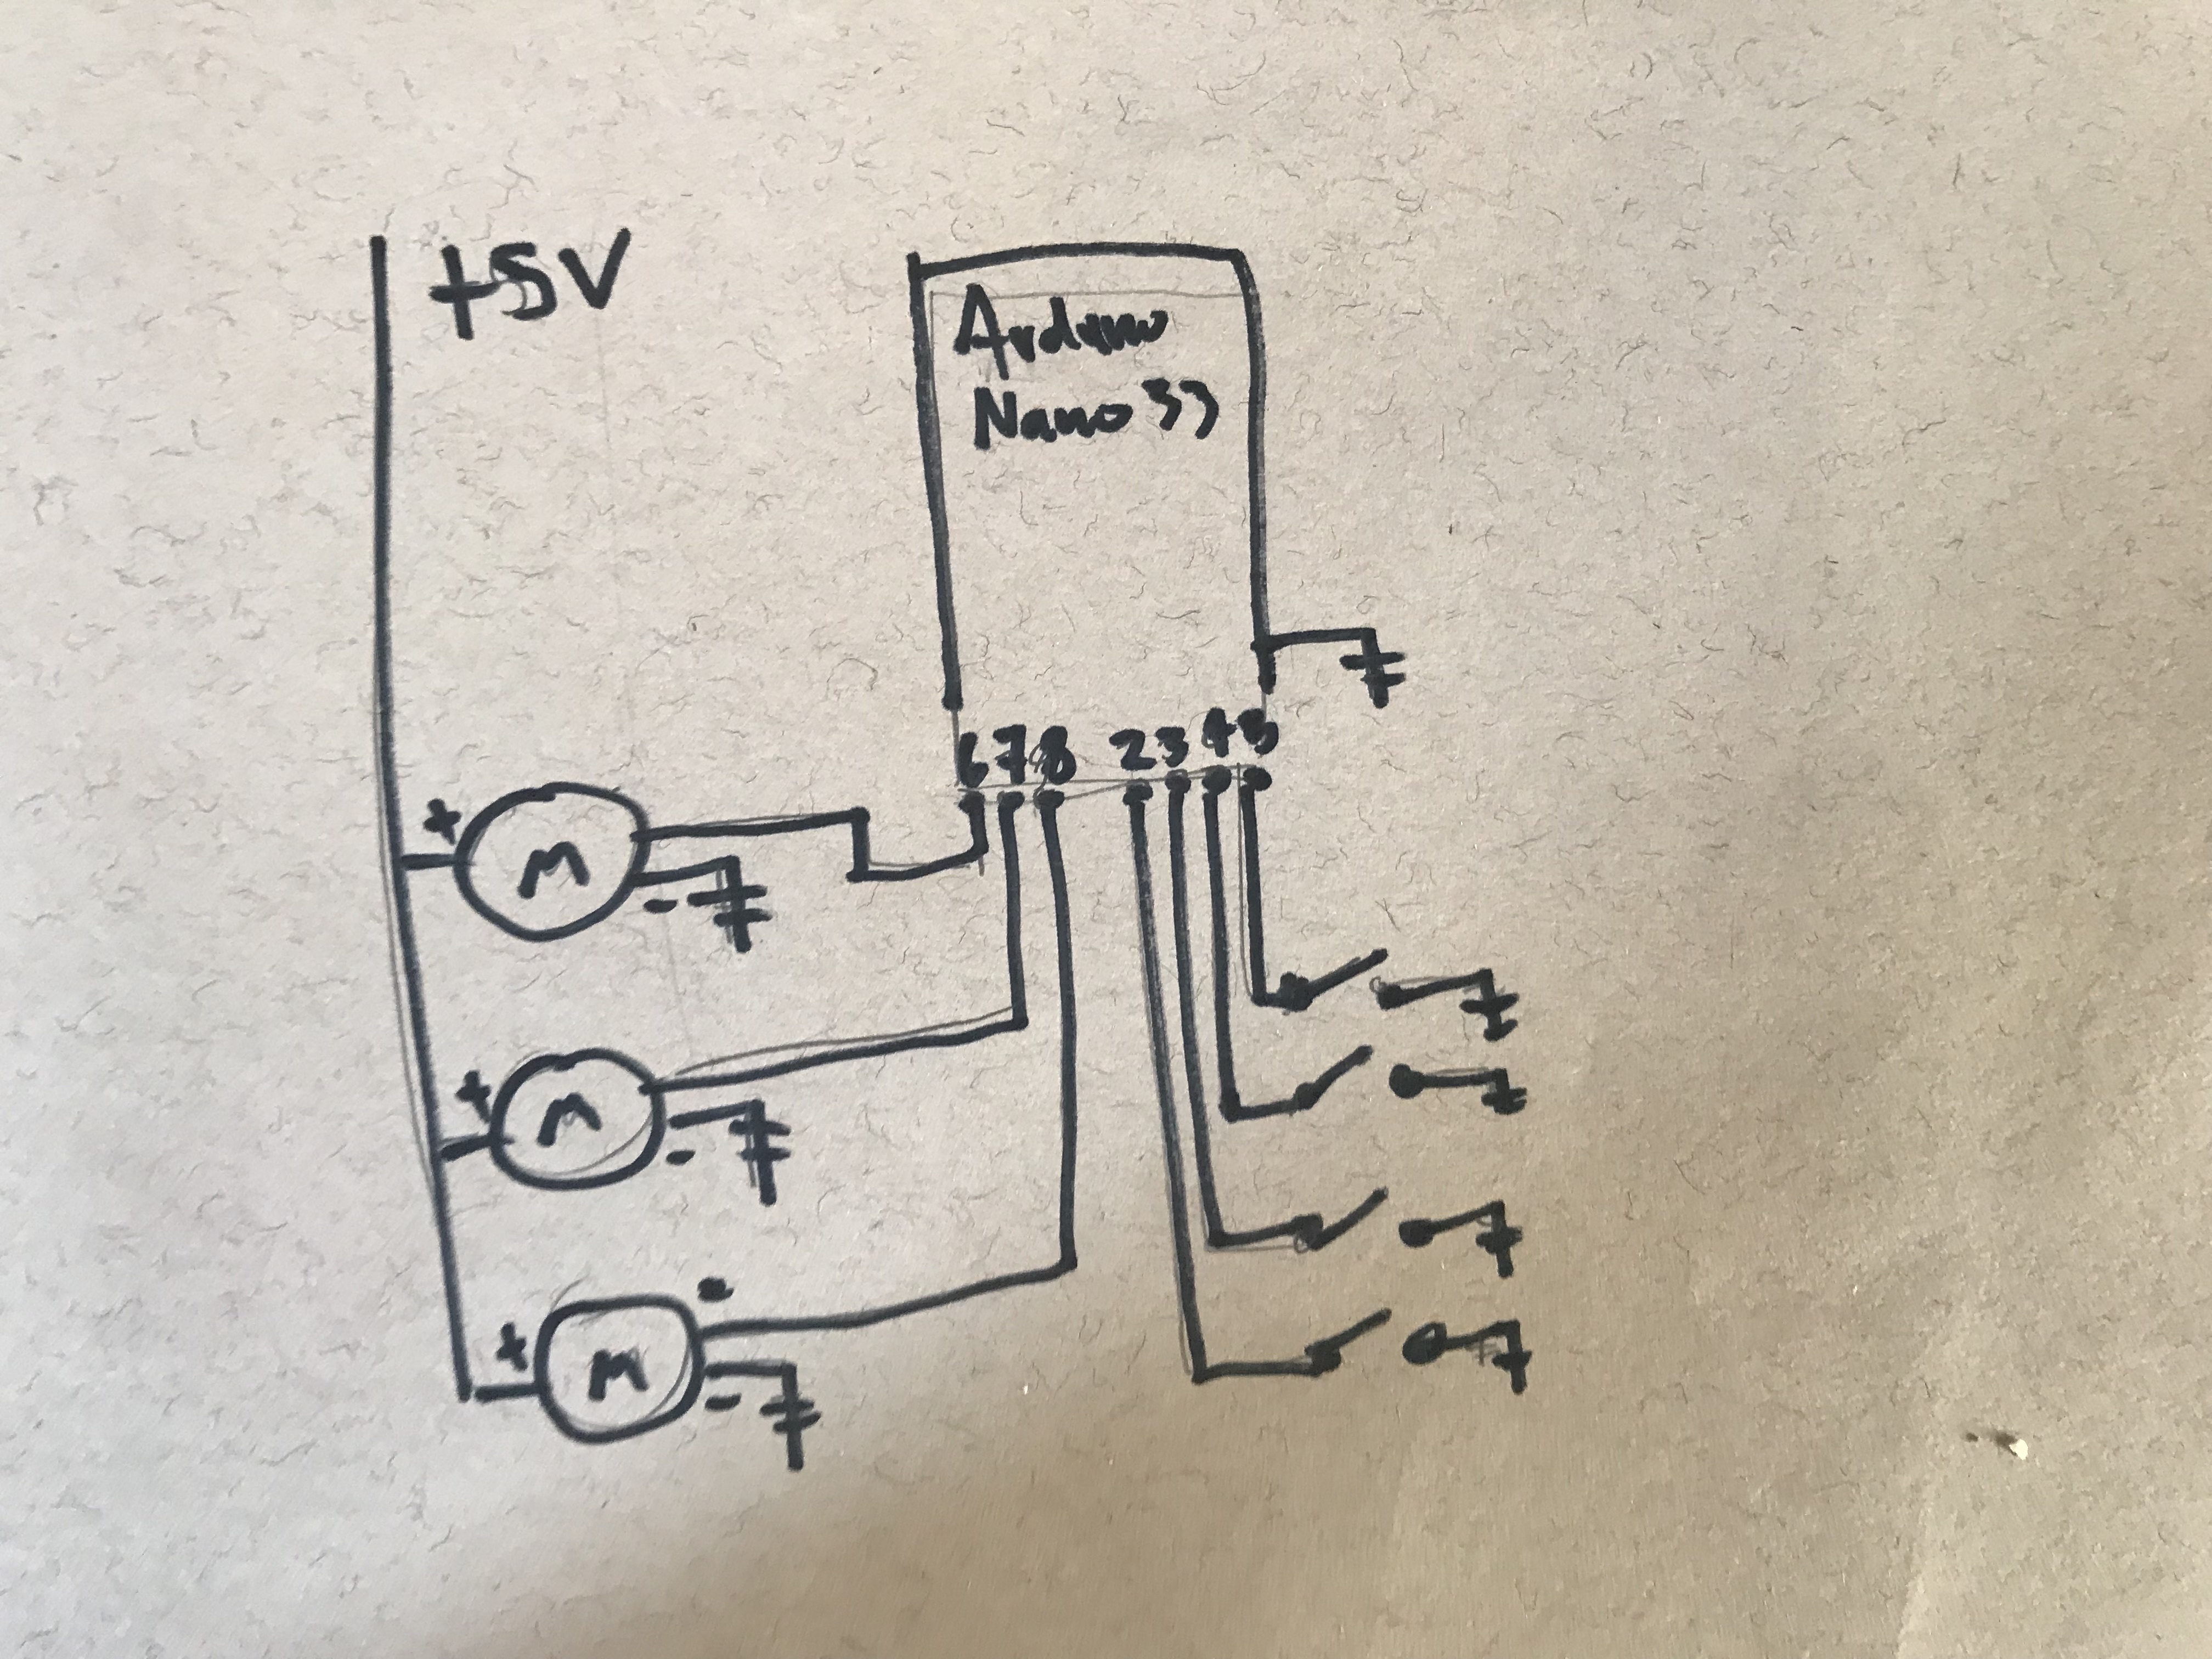 +5V
Arduino
Nano 33
6 7 8 2 3 4 5
+
M
-
+
M
-
-
+
M
-